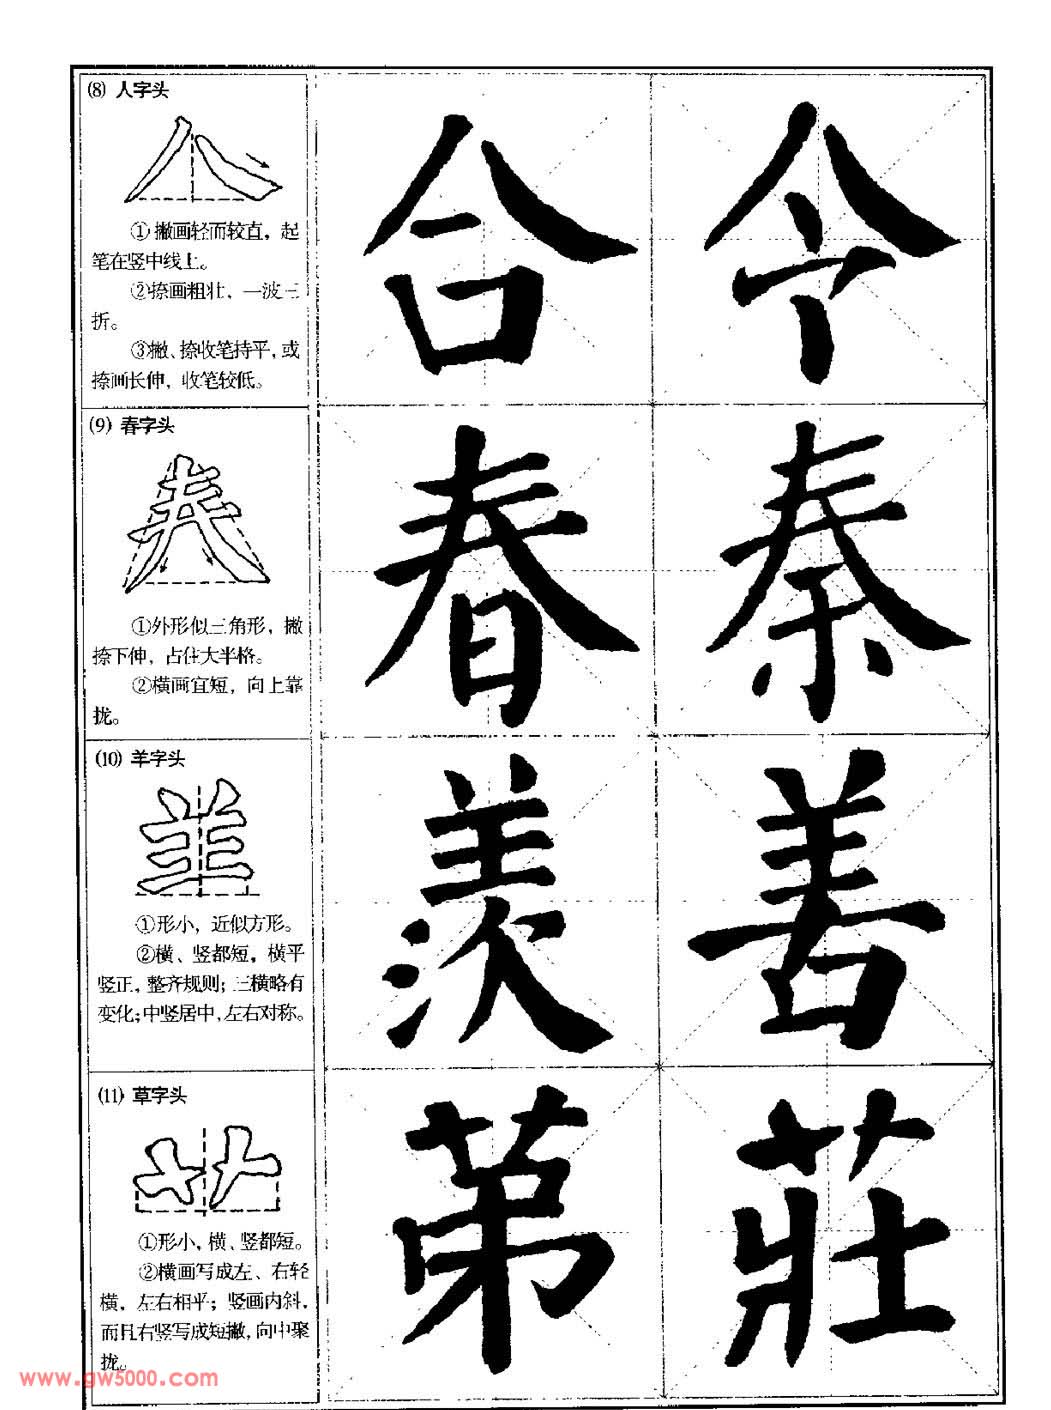 ⑻ 人字头
①撇画轻而较直，起
笔在竖中线上。
②捺画粗壮，一波三
折。
③撇、捺收笔持平，或
捺画长伸，收笔较低。
合 今
⑼ 春字头
①外形似三角形，撇
捺下伸，占住大半格。
②横画宜短，向上靠
拢。
春 秦
⑽ 羊字头
①形小，近似方形。
②横、竖都短，横平
竖正，整齐规则；三横略有
变化；中竖居中，左右对称。
羡 善
⑾ 草字头
①形小，横、竖都短。
②横画写成左、右轻
横，左右相平；竖画内斜，
而且右竖写成短撇，向中聚
拢。
苐 莊
www.gw5000.com